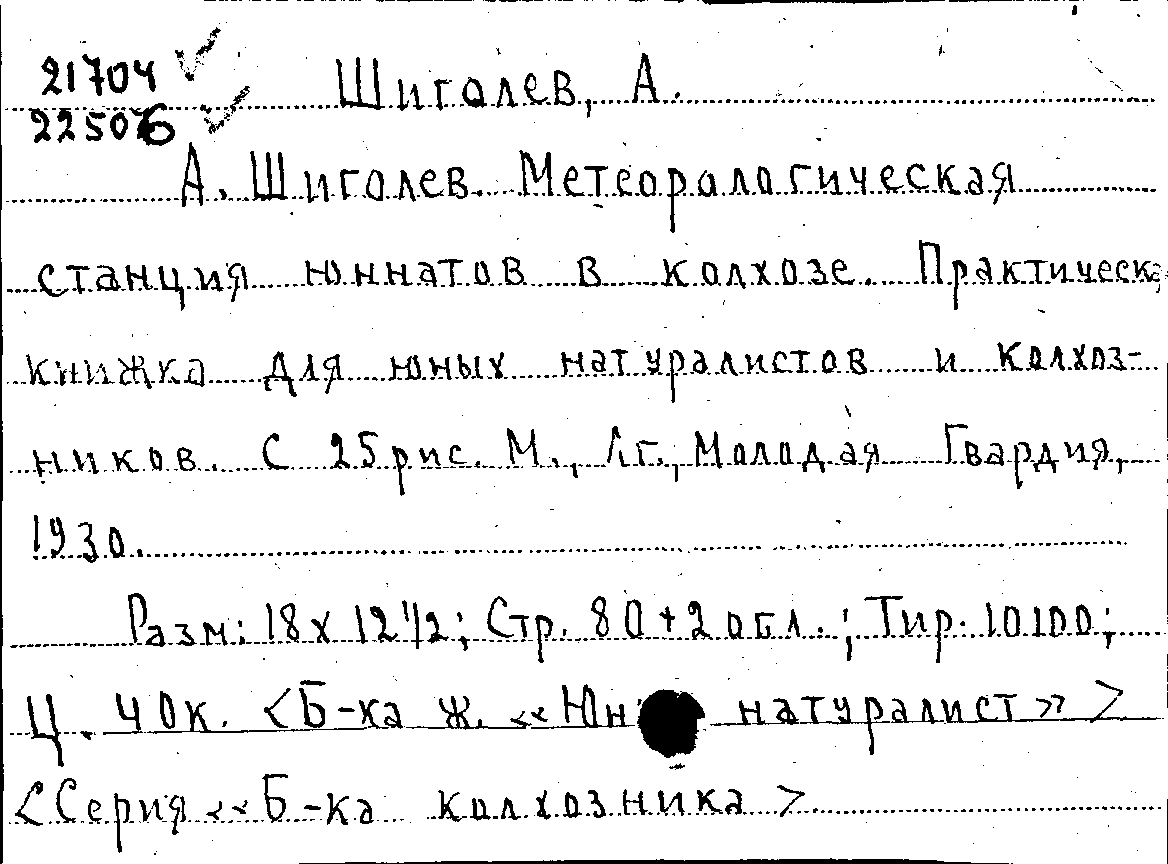 21704 Шиголев, А.
22506
А. Шиголев. Метеорологическая
станция юннатов в колхозе. Практическ
книжка для юных натуралистов и колхоз-
ников. С 25 рис. М., Лг., Молодая Гвардия,
1930.
Разм: 18 x 12 1/2; Стр. 80 + 2 обл.; Тир. 10100;
Ц. 40к. <Б-ка ж. «Юн натуралист»>
<Серия ««Б-ка колхозника >